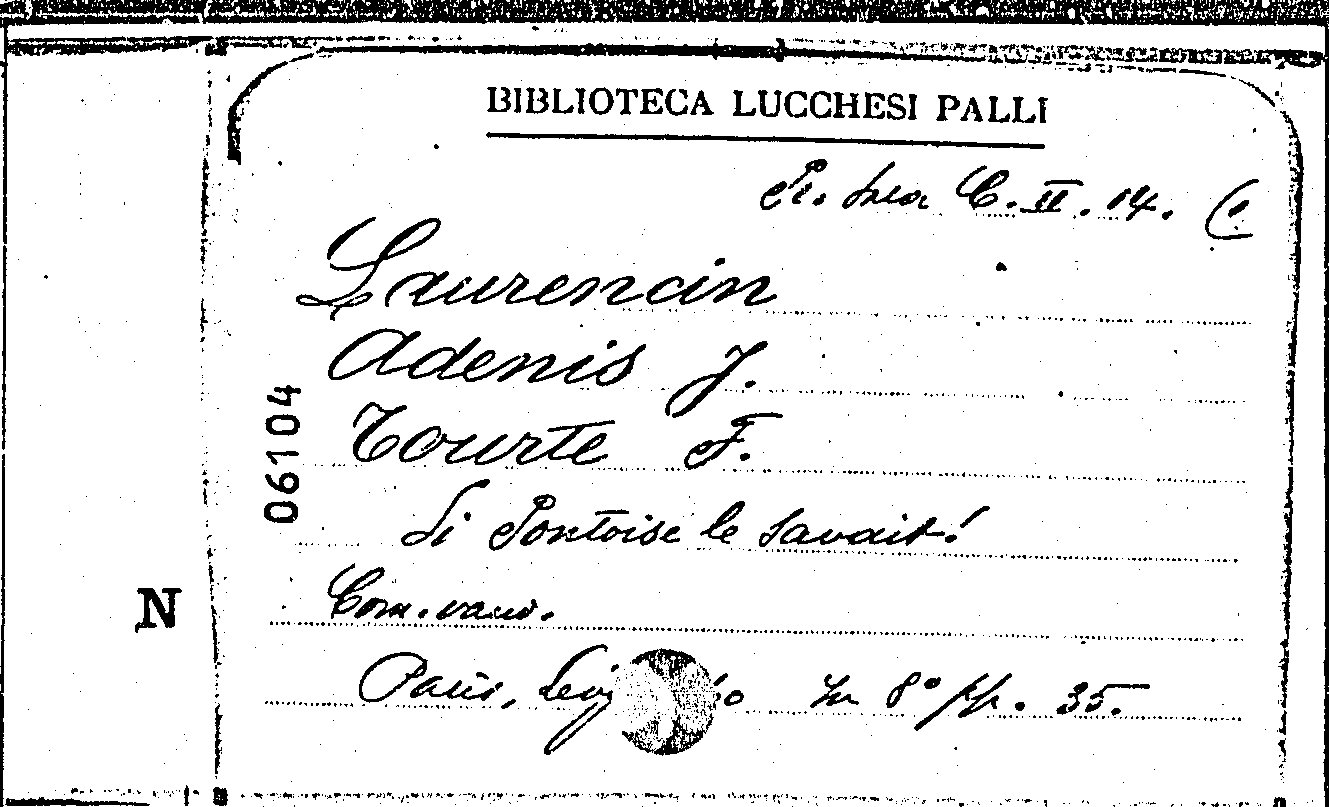 BIBLIOTECA LUCCHESI PALLI
C. II. 14. (1
Laurencin
Adenis J.
Tourte F.
Si Pontoise le savait!
Com. vaud.
Paris, in 8° pp. 35.
06104
N